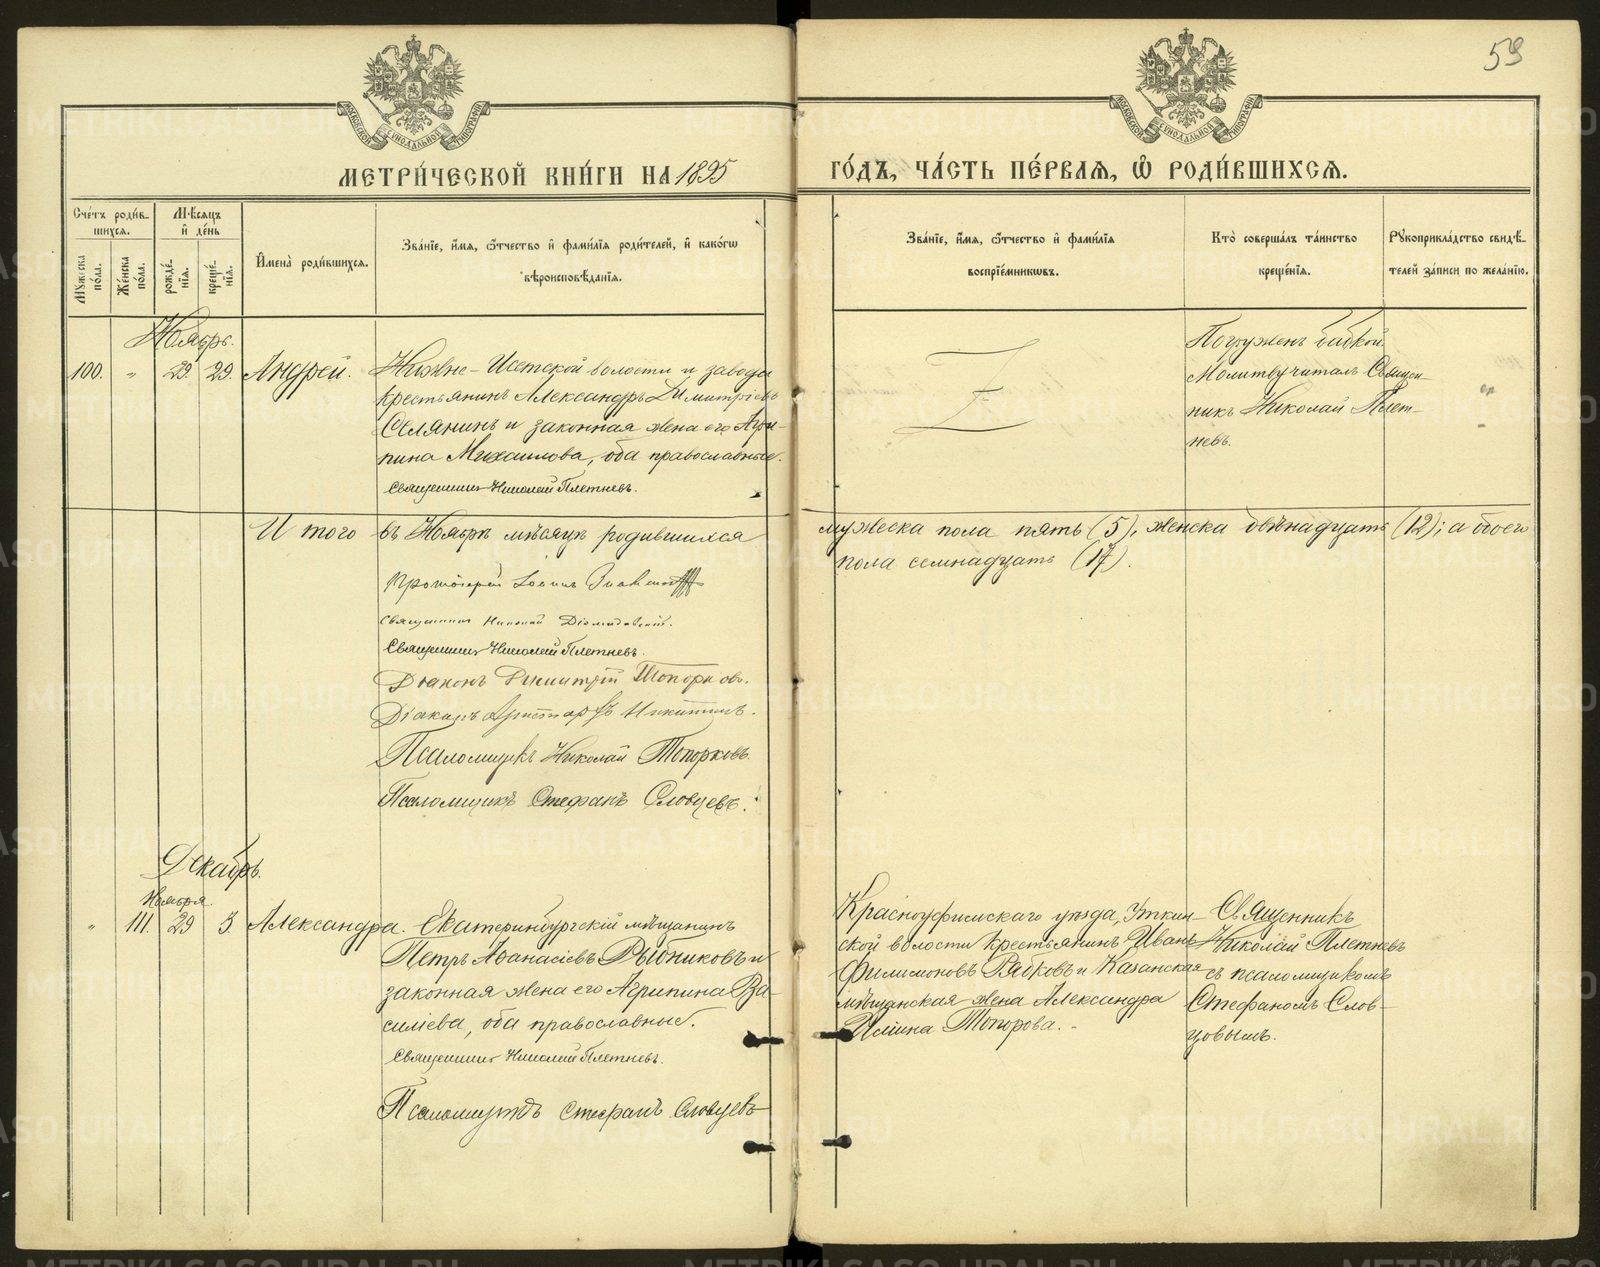 59
МОСКОВСКОЙ СѴНОДАЛЬНОЙ ТИПОГРАФІИ
МОСКОВСКОЙ СѴНОДАЛЬНОЙ ТИПОГРАФІИ
МЕТРИ́ЧЕСКОЙ КНИ́ГИ НА 1895 ГО́ДЪ, ЧА́СТЬ ПЕ́РВАЯ, Ѽ РОДИ́ВШИХСЯ.
Сче́тъ роди́в-
шихся.
Мꙋжеска по́ла.
Же́нска по́ла.
Мѣ́сяцъ
и҆ де́нь
рожде́-
нїя.
креще́-
нїя.
И҆мена̀ роди́вшихся.
Зва́нїе, и҆́мя, ѻ҆́тчество и҆ фами́лїя роди́телей, и҆ како́гѡ
вѣроисповѣ́данїя.
Зва́нїе, и҆́мя, ѻ҆́тчество и҆ фами́лїя
воспрїе́мникѡвъ.
Кто̀ соверша́лъ та́инство
креще́нїя.
Рꙋкоприкла́дство свидѣ́-
телей за́писи по жела́нїю.
Ноябрь.
100. " 29. 29. Андрей.
Нижне-Исетской волости и завода
крестьянинъ Александръ Димитріевъ
Селянинъ и законная жена его Агри-
пина Михаилова, оба православные.
Священникъ Николай Плетневъ.
Погруженъ бабкой.
Молитву читалъ Священ-
никъ Николай Плет-
невъ.
Итого въ Ноябрѣ мѣсяцѣ родившихся мужеска пола пять (5), женска двѣнадцать (12); а обоего
пола семнадцать (17).
Протоіерей Іоаннъ
Священникъ Николай Діомидовскій.
Священникъ Николай Плетневъ.
Діаконъ Димитрій Топорковъ.
Діаконъ Аристархъ Никитинъ.
Псаломщикъ Николай Топорковъ.
Псаломщикъ Стефанъ Словцевъ.
Декабрь.
Ноября
" 111. 29 3. Александра.
Екатеринбургскій мѣщанинъ
Петръ Афанасіевъ Рыбниковъ и
законная жена его Агрипина Ва-
силіева, оба православные.
Священникъ Николай Плетневъ.
Псаломщикъ Стефанъ Словцевъ
Красноуфимскаго уѣзда, Уткин-
ской волости крестьянинъ Иванъ
Филимоновъ Рябковъ и Казанская
мѣщанская жена Александра
Ильина Топорова.
Священникъ
Николай Плетневъ
съ псаломщикомъ
Стефаномъ Слов-
цовымъ.
METRIKI.GASO-URAL.RU